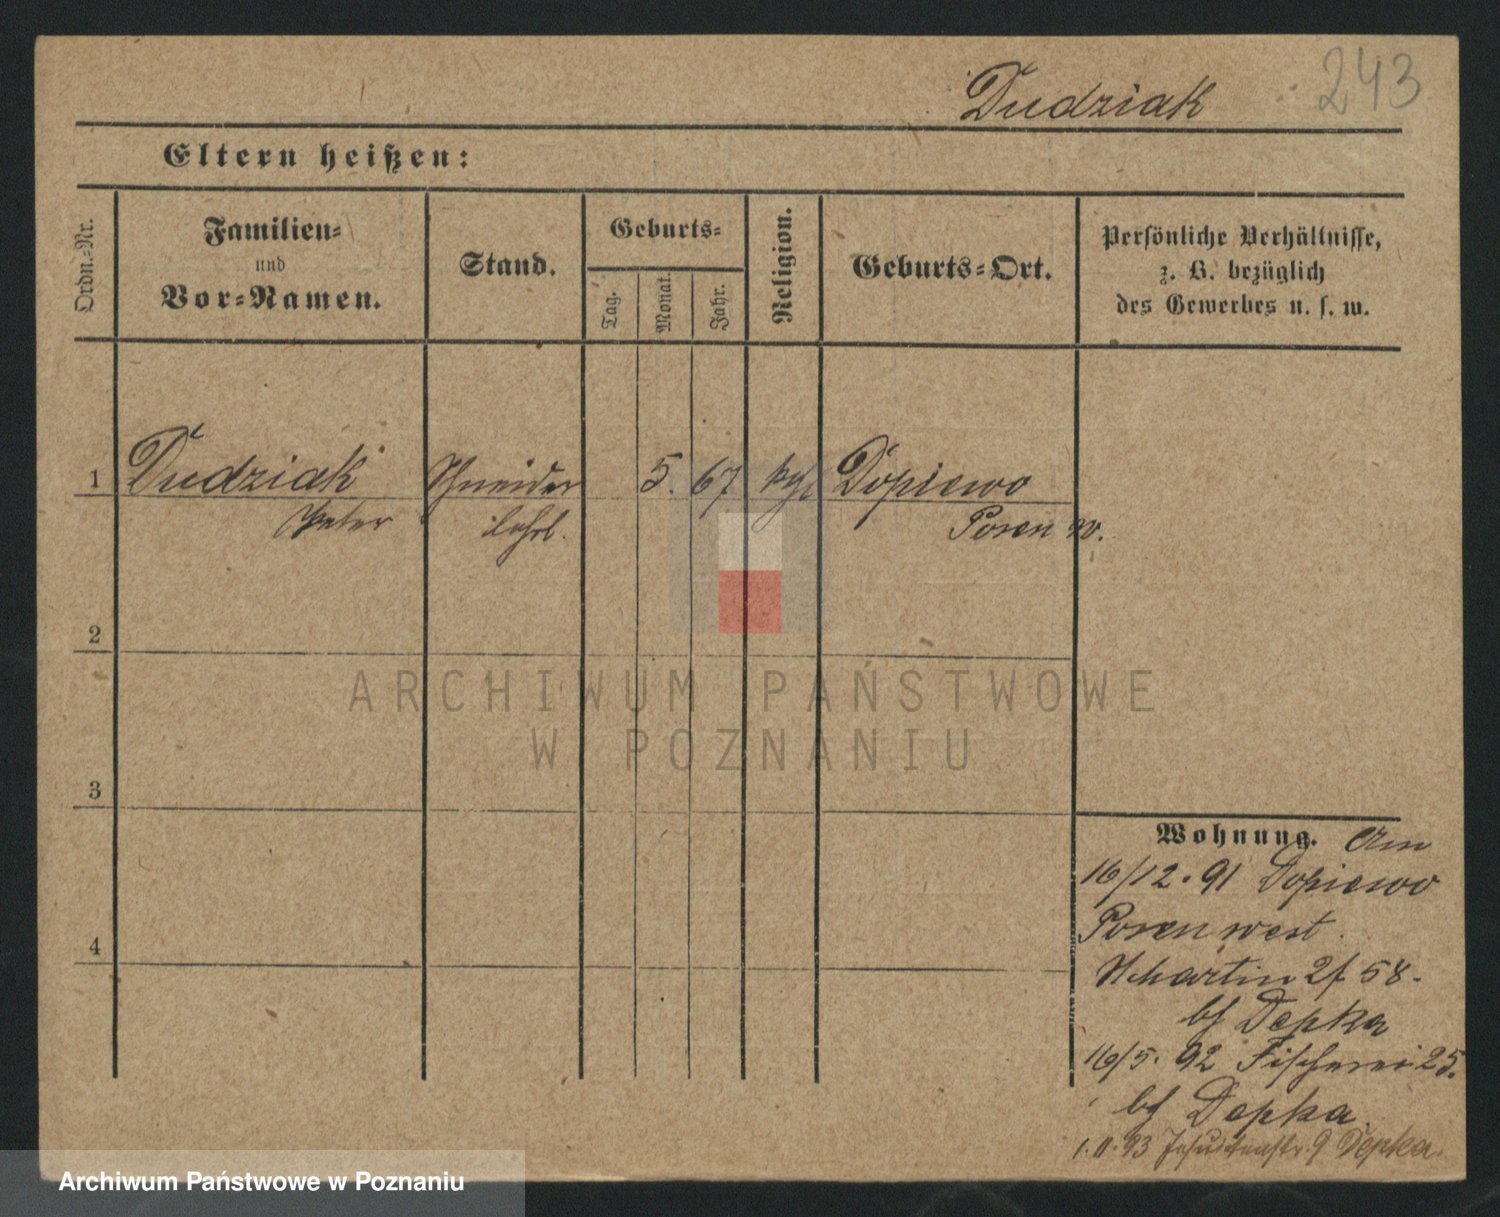 243
Dudziak
Eltern heißen:
Ordn.-Nr.
Familien-
und
Vor-Namen.
Stand.
Geburts-
Tag.
Monat.
Jahr.
Religion.
Geburts-Ort.
Persönliche Verhältnisse,
z. B. bezüglich
des Gewerbes u. s. w.
1 Dudziak Schneider 5. 67 kath Dopiewo
Peter lehrl. Posen w.
2
3
4
Wohnung. Am
16/12. 91 Dopiewo
Posen west.
St Martin 58.
bf Depka
16/5. 92 Fischerei 25.
bf Depka
1. 11. 93 Jesuitenstr. 9 Depka.
ARCHIWUM PAŃSTWOWE
W POZNANIU
Archiwum Państwowe w Poznaniu